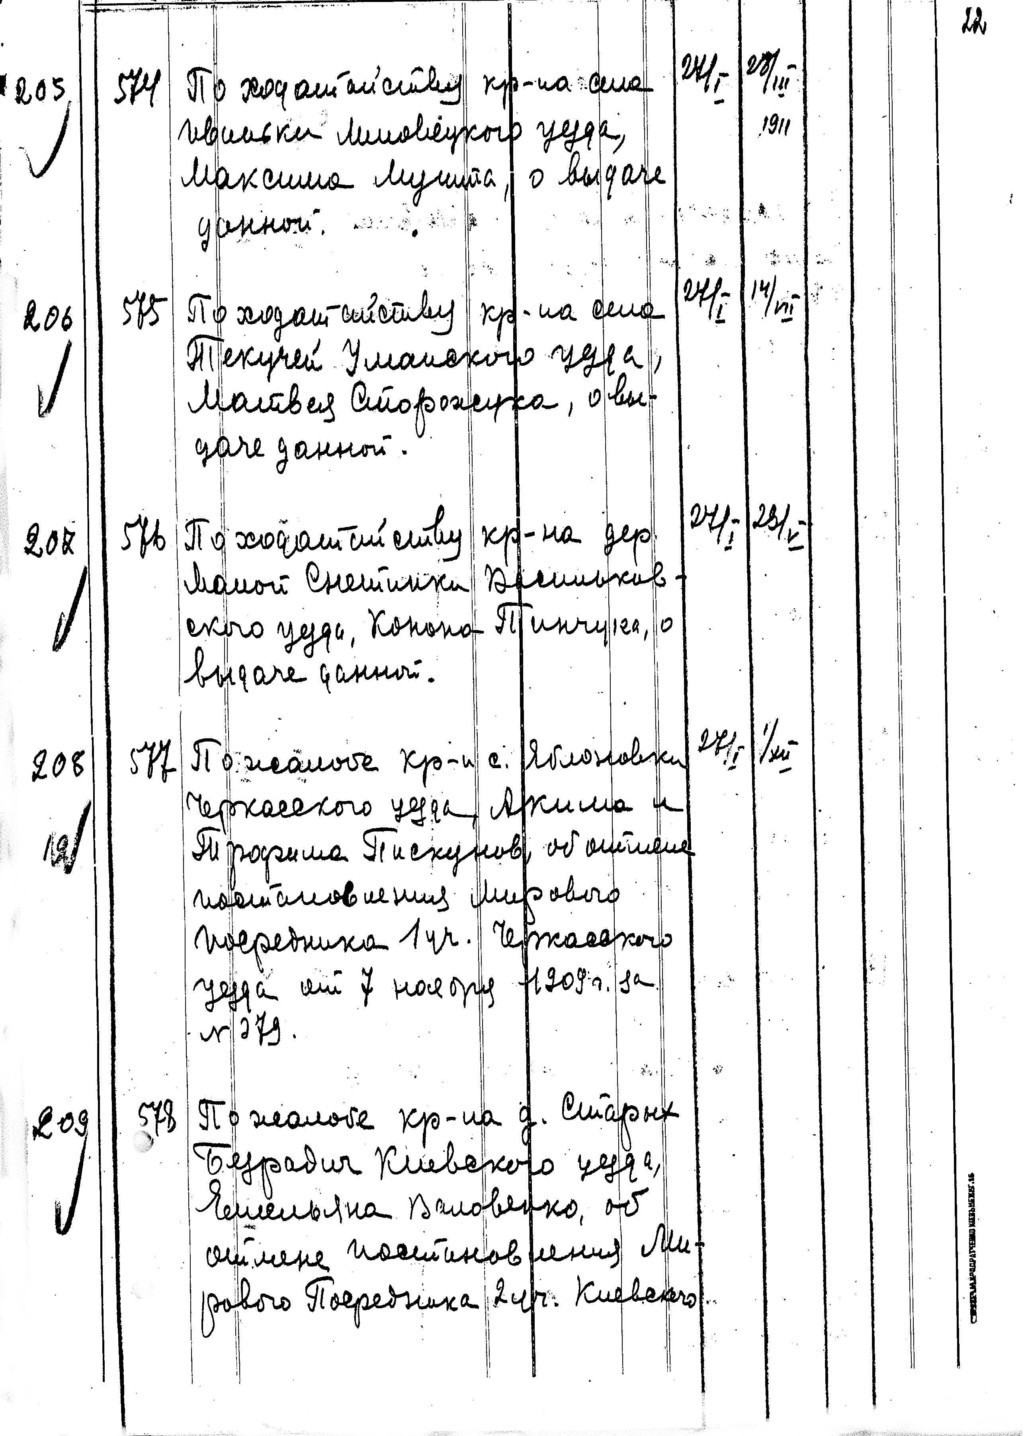 22
205 574 По ходатайству кр-на села 27/I 28/III
Ивоньки Липовецкого уезда, 1911
Максима Мушта, о выдаче
данной.
206 575 По ходатайству кр-на села 27/I 14/VII
Текучей Уманского уезда,
Матвея Сторожука, о вы-
даче данной.
207 576 По ходатайству кр-на дер. 27/I 23/V
Малой Снетинки Васильков-
ского уезда, Конона Пинчука, о
выдаче данной.
208 577 По жалобе кр-н с. Яблоновки 27/I 1/XII
Черкасского уезда, Акима и
Трофима Пискунов, об отмене
постановления Мирового
посредника 1 уч. Черкасского
уезда от 7 ноября 1909 г. за
N 279.
209 578 По жалобе кр-на д. Старых
Безрадич Киевского уезда,
Емельяна Валовенко, об
отмене постановления Ми-
рового Посредника 2 уч. Киевского